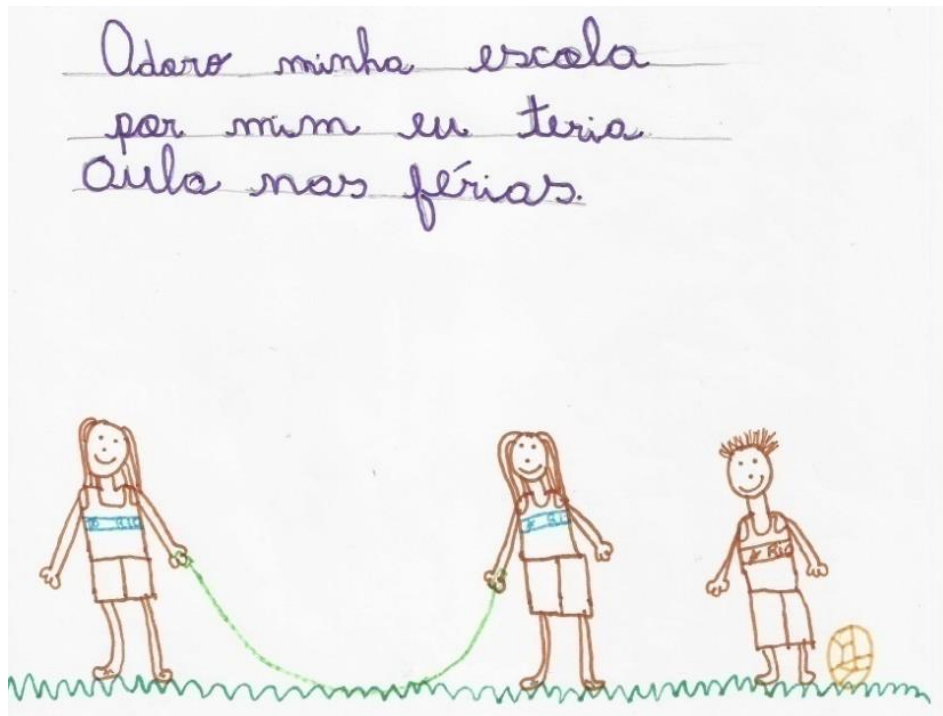 Adoro minha escola
por mim eu teria
Aula nas férias.
RIO
RIO
Rio